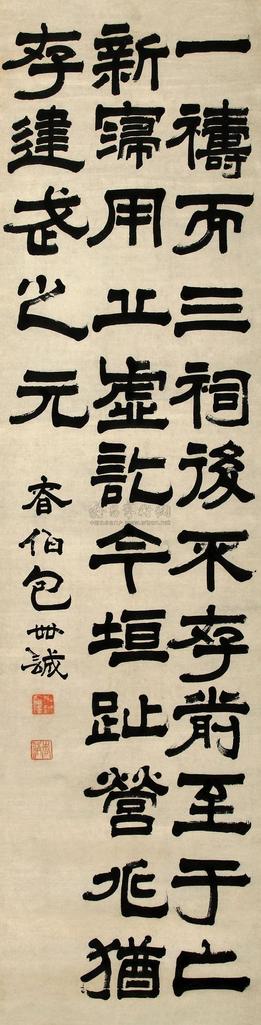 一禱而三祠後不存前至于亡
新寖用丘虛訖今垣趾營兆猶
存建武之元
眘伯包世誠